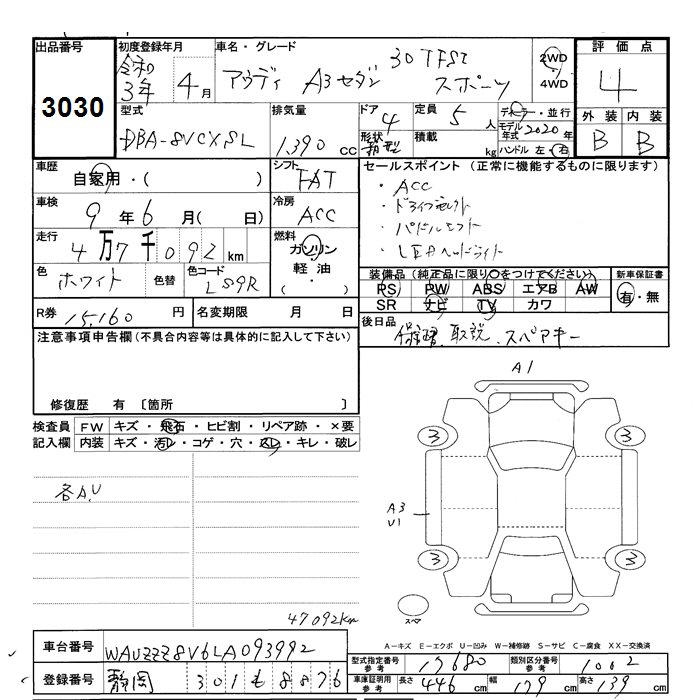 出品番号 初度登録年月 車名・グレード 評価点
3030 令和 3年 4月 アウディ A3セダン 30 TFSI スポーツ 2WD ・ 4WD 4
型式 排気量 ドア 定員 ディーラー・並行 外装 内装
DBA-8VCXSL 1,390 cc 4 5人 モデル年式 2020年 B B
形状 箱型 積載 kg ハンドル 左・右
車歴 シフト セールスポイント (正常に機能するものに限ります)
自家用・( ) FAT ・ACC
車検 冷房 ・ドライブセレクト
9年6月( 日) ACC ・パドルシフト
走行 燃料 ・LEDヘッドライト
4万7千092km ガソリン
軽油
・( )
色 ホワイト 色替 色コード LS9R
装備品(純正品に限り○をつけてください) 新車保証書
PS PW ABS エアB AW 有・無
SR ナビ TV カワ
R券 15,160円 名変期限 月 日 後日品
保証書. 取説. スペアキー
注意事項申告欄(不具合内容等は具体的に記入して下さい)
修復歴 有〔箇所 〕
検査員 FW キズ・飛石・ヒビ割・リペア跡・×要
記入欄 内装 キズ・汚レ・コゲ・穴・スレ・キレ・破レ
各A.U
A1
3 3
A3
U1
3 3
スペア
47092km
A-キズ E-エクボ U-凹み W-補修跡 S-サビ C-腐食 XX-交換済
車台番号 WAUZZZ8V6LA093992 型式指定番号 参考 17680 類別区分番号 参考 1002
登録番号 静岡 301 も 8876 車庫証明用 参考 長さ 446cm 幅 179cm 高さ 139cm